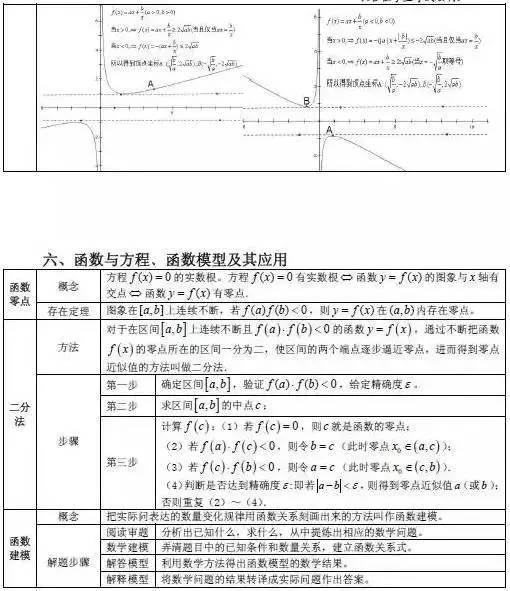 f(x)=ax+b/x(a>0,b>0)
当x>0,⇒f(x)=ax+b/x≥2√ab(当且仅当ax=b/x)
当x<0,⇒f(x)=-(ax+b/x)≤2√ab
所以得到顶点坐标A(√b/a,2√ab),B(-√b/a,-2√ab)
A
f(x)=ax+b/x(a<0,b<0)
B
A
六、函数与方程、函数模型及其应用
函数零点
概念
方程f(x)=0的实数根。方程f(x)=0有实数根⇔函数y=f(x)的图象与x轴有
交点⇔函数y=f(x)有零点.
存在定理
图象在[a,b]上连续不断，若f(a)f(b)<0，则y=f(x)在(a,b)内存在零点。
二分法
方法
对于在区间[a,b]上连续不断且f(a)·f(b)<0的函数y=f(x)，通过不断把函数
f(x)的零点所在的区间一分为二，使区间的两个端点逐步逼近零点，进而得到零点
近似值的方法叫做二分法.
步骤
第一步
确定区间[a,b]，验证f(a)·f(b)<0，给定精确度ε。
第二步
求区间[a,b]的中点c；
第三步
计算f(c)：（1）若f(c)=0，则c就是函数的零点；
（2）若f(a)·f(c)<0，则令b=c（此时零点x₀∈(a,c)）；
（3）若f(c)·f(b)<0，则令a=c（此时零点x₀∈(c,b)）.
（4）判断是否达到精确度ε：即若|a-b|<ε，则得到零点近似值a（或b）；
否则重复（2）～（4）.
函数建模
概念
把实际问表达的数量变化规律用函数关系刻画出来的方法叫作函数建模。
解题步骤
阅读审题
分析出已知什么，求什么，从中提炼出相应的数学问题。
数学建模
弄清题目中的已知条件和数量关系，建立函数关系式。
解答模型
利用数学方法得出函数模型的数学结果。
解释模型
将数学问题的结果转译成实际问题作出答案。